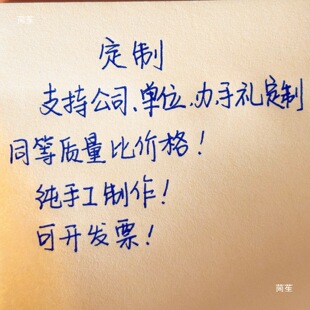 简茱
定制
支持公司、单位、办手礼定制
同等质量比价格！
纯手工制作！
可开发票！
简茱